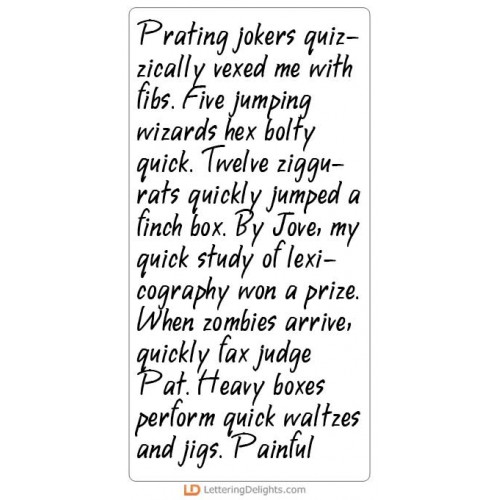 Prating jokers quiz-
zically vexed me with
fibs. Five jumping
wizards hex bolty
quick. Twelve ziggu-
rats quickly jumped a
finch box. By Jove, my
quick study of lexi-
cography won a prize.
When zombies arrive,
quickly fax judge
Pat. Heavy boxes
perform quick waltzes
and jigs. Painful
LD LetteringDelights.com